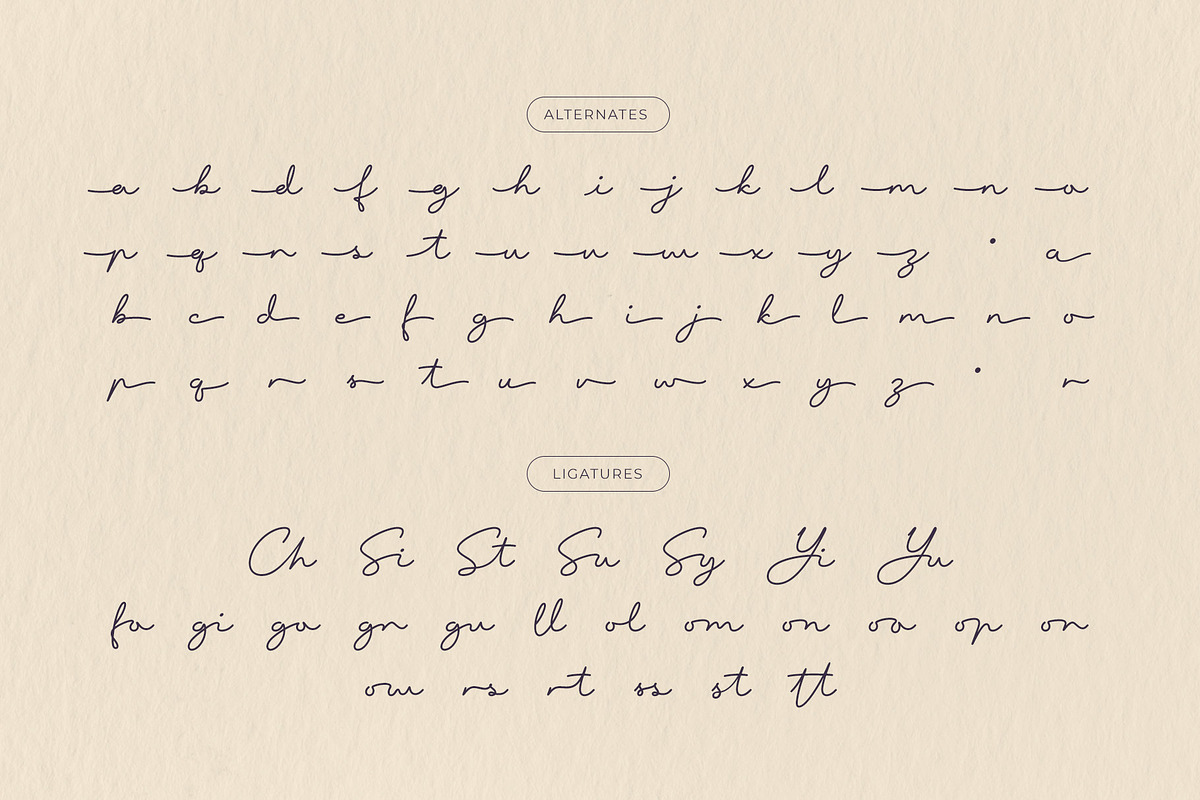 ALTERNATES
a b d f g h i j k l m n o
p q r s t u v w x y z • a
b c d e f g h i j k l m n o
p q r s t u v w x y z • r
LIGATURES
Ch Si St Su Sy Yi Yu
fo gi go gn gu ll ol om on oo op or
ow rs rt ss st tt